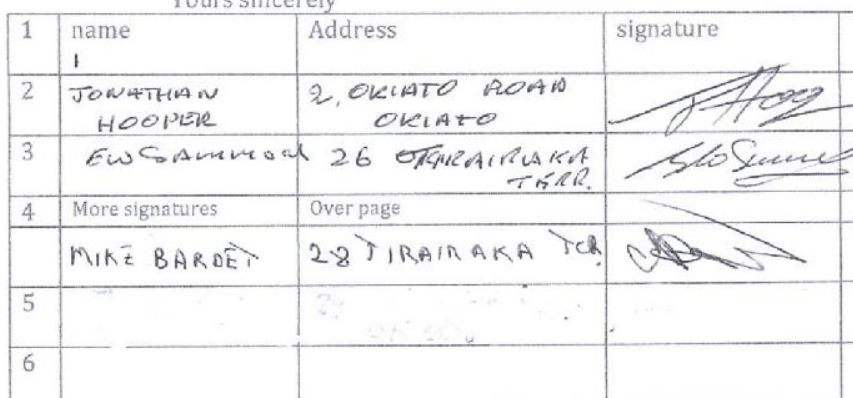 Yours sincerely
1 name Address signature
1
2 JONATHAN 2, OKIATO ROAD
HOOPER OKIATO
3 26 TIRAIRAKA
TERR.
4 More signatures Over page
MIKE BARDET 28 TIRAIRAKA TER
5
6